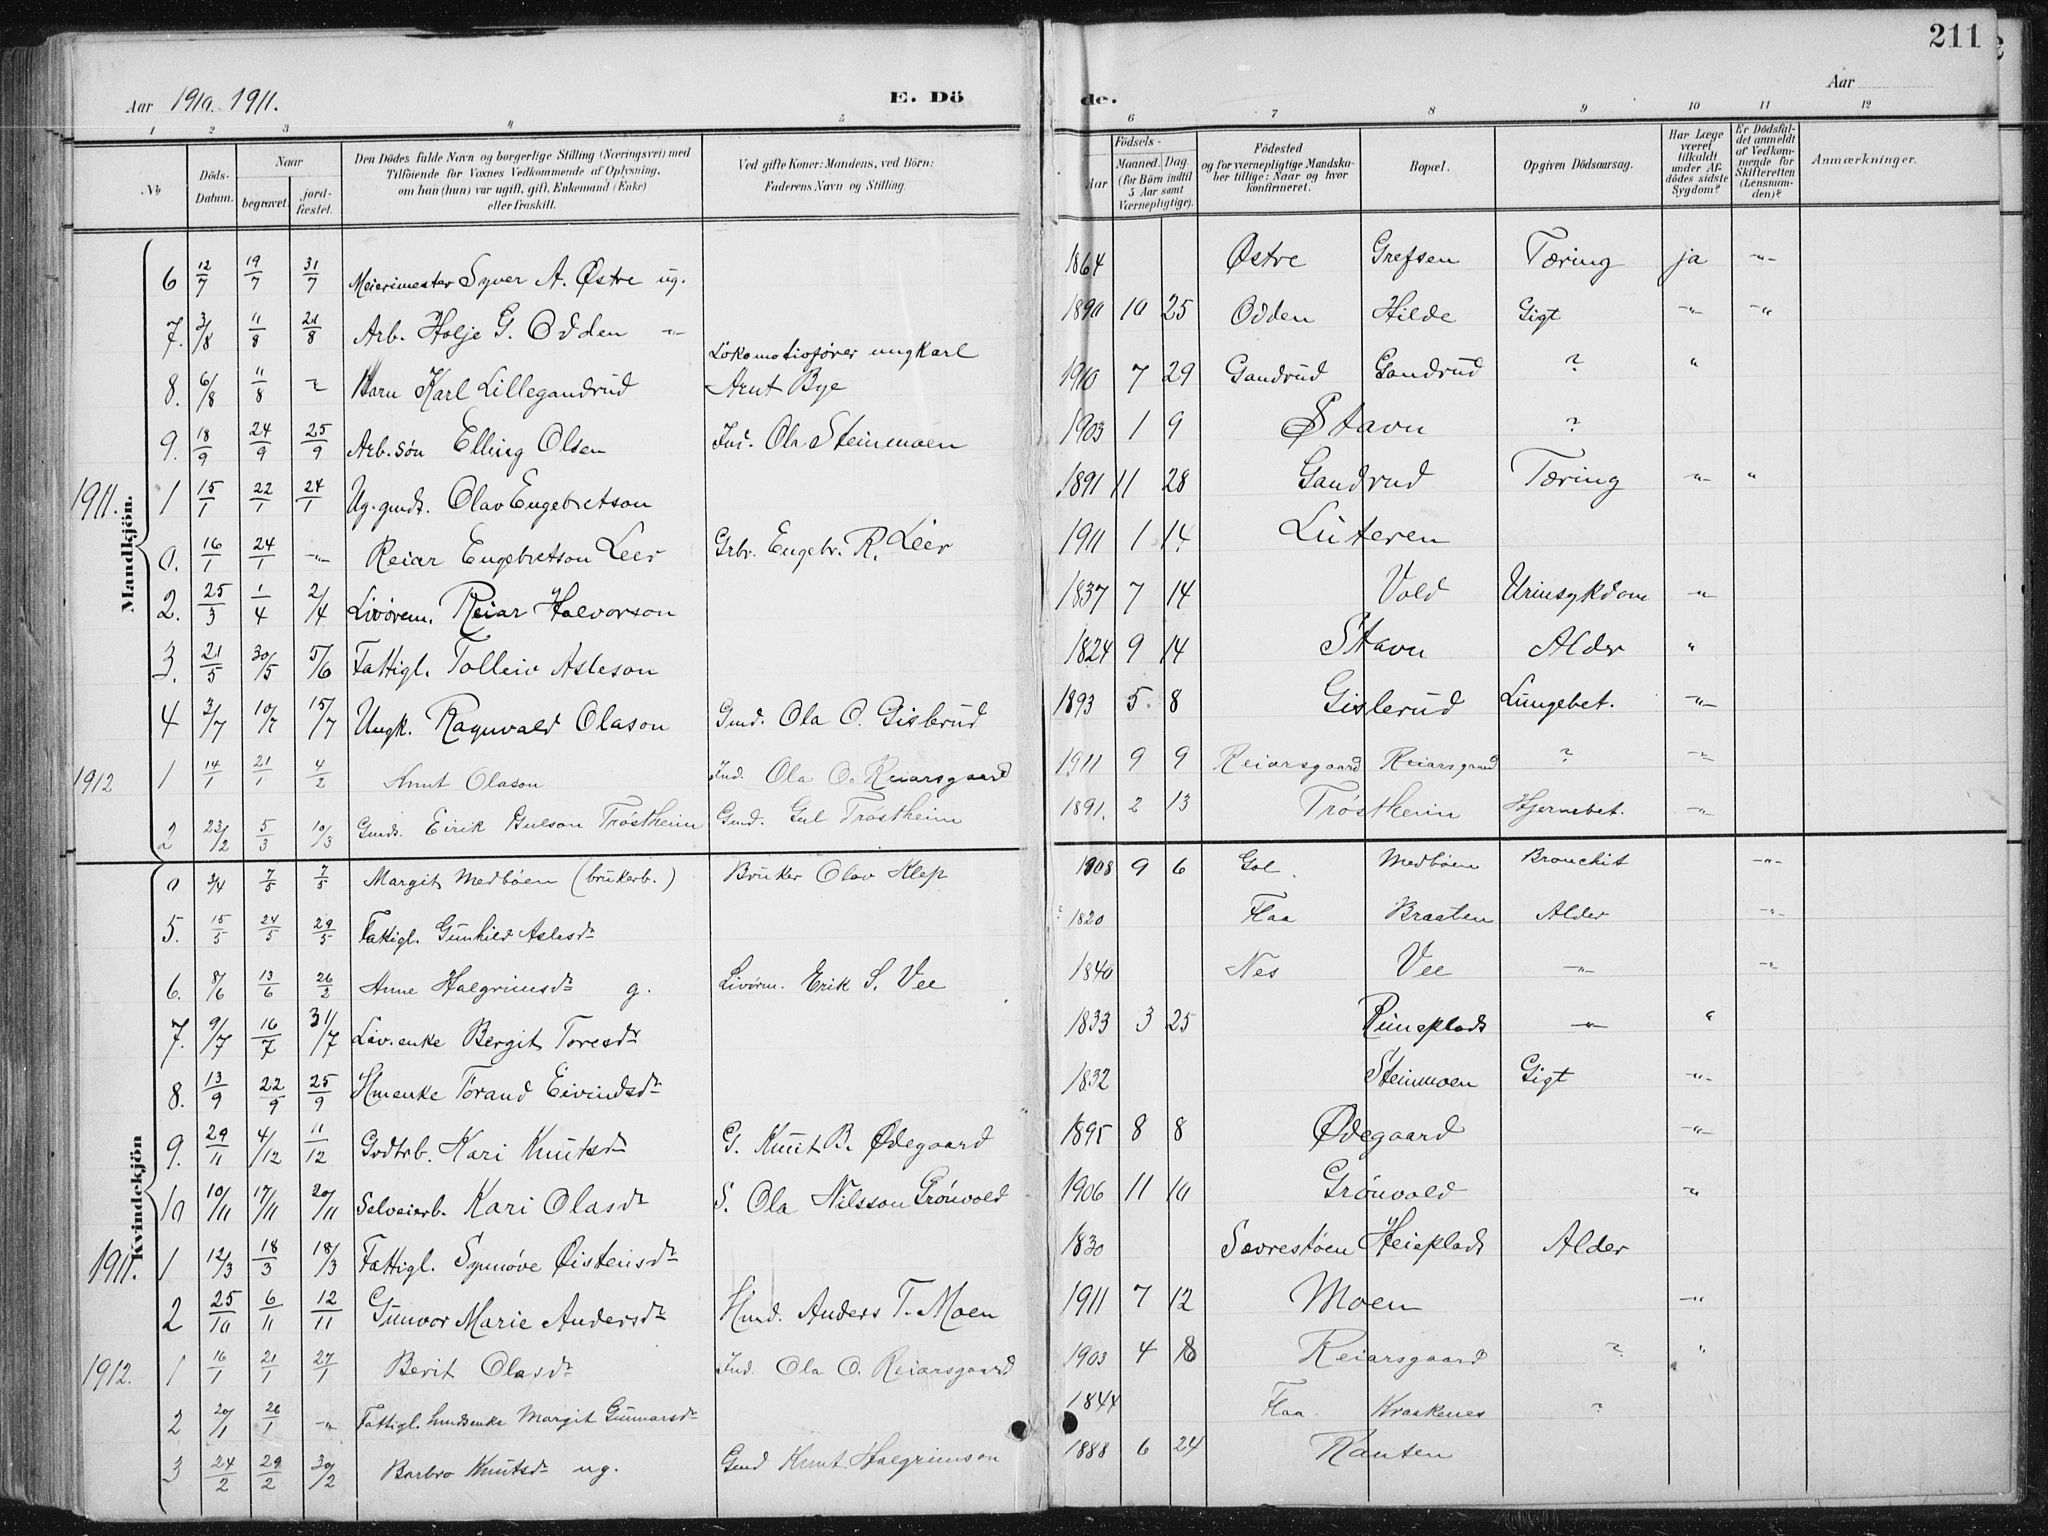 211
Aar 1910. 1911. E. Dö de. Aar
1 2 3 4 5 6 7 8 9 10 11 12
No Döds-Datum. Naar begravet. jord-fæstet. Den Dödes fulde Navn og borgerlige Stilling (Næringsvei) med Tilföiende for Voxnes Vedkommende af Oplysning, om han (hun) var ugift, gift, Enkemand (Enke) eller fraskilt. Ved gifte Koner: Mandens, ved Börn: Faderens Navn og Stilling. Födsels- Aar Maaned. Dag (for Börn indtil 5 Aar samt Værnepligtige). Födested og for værnepligtige Mandskaber tillige: Naar og hvor konfirmeret. Bopæl. Opgiven Dödsaarsag. Har Læge været tilkaldt under Afdödes sidste Sygdom? Er Dödsfaldet anmeldt af Vedkommende for Skifteretten (Lensmanden)? Anmærkninger.
Mandkjön.
6 12/7 19/7 31/7 Meierimester Syver A. Østre ug. 1864 Østre Grefsen Tæring ja -"-
7. 3/8 11/8 21/8 Arb. Holje G. Odden -"- 1890 10 25 Odden Hilde Gigt -"- -"-
8. 6/8 11/8 " Barn Karl Lillegandrud Lokomotivfører ungkarl Arnt Bye 1910 7 29 Gandrud Gandrud ? "
9. 18/9 24/9 25/9 Arb. søn Elling Olsen Ind. Ola Steinmoen 1903 1 9 Stavn ?
1911. 1 15/1 22/1 24/1 Ug. gmds. Olav Engebretson 1891 11 28 Gandrud Tæring -"- "
0. 16/1 24/1 -"- Reiar Engebretson Leer Grbr. Engebr. R. Leer 1911 1 14 Luteren
2. 25/3 1/4 2/4 Livörem. Reiar Halvorson 1837 7 14 Vold Urinsykdom -"-
3. 21/5 30/5 5/6 Fattigl. Tolleiv Asleson 1824 9 14 Stavn Alder "
4 3/7 10/7 15/7 Ungk. Ragnvald Olason Gmd. Ola O. Gislerud 1893 5. 8 Gislerud Lungebet. -"-
1912 1 14/1 21/1 4/2 Knut Olason Ind. Ola O. Reiarsgaard 1911 9 9 Reiarsgaard Reiarsgaard ? -"-
2 23/2 5/3 10/3 Gmds. Eirik Gulson Tröstheim Gmd. Gul Tröstheim 1891. 2 13 Tröstheim Hjernebet. -"-
Kvindekjön
0 3/4 7/5 7/5 Margit Medböen (brukerb.) Bruker Olav Klep 1908 9 6 Gol. Medböen Bronchit -"-
5. 15/5 24/5 29/5 Fattigl. Gunhild Aslesdr ? 1820 Flaa Braaten Alder -"-
6. 8/6 13/6 26/2 Anne Halgrimsdr g. Livörm. Erik S. Vee 1840 Nes Vee -"- -"-
7. 9/7 16/7 31/7 Liv. enke Bergit Toresdr 1833 3 25 Runeplads -"- "
8. 13/9 22/9 25/9 Hmenke Torand Eivindsdr 1832 Steinmoen Gigt -"-
9. 29/11 4/12 11/12 Grdtrb. Kari Knutsdr G. Knut B. Ødegaard 1895 8 8 Ødegaard -"-
10 10/11 17/11 20/11 Selveierb. Kari Olasdr S. Ola Nilsson Grönvold 1906 11 10 Grönvold "
1911. 1 12/3 18/3 18/3 Fattigl. Synnöve Øistensdr 1830 Sevrestöen Heieplads Alder
2 25/10 6/11 12/11 Gunvor Marie Andersdr Hmd. Anders T. Moen 1911 7 12 Moen -"-
1912. 1 16/1 21/1 27/1 Berit Olasdr Ind. Ola O. Reiarsgaard 1903 4 8 Reiarsgaard ? "
2 20/1 26/1 -"- Fattigl. hmdsenke Margit Gunnarsdr 1844 Flaa. Kraakenes ?
3 24/2 29/2 30/2 Barbro Knutsdr ug. Gmd Knut Halgrimson 1888 6 24 Kauten